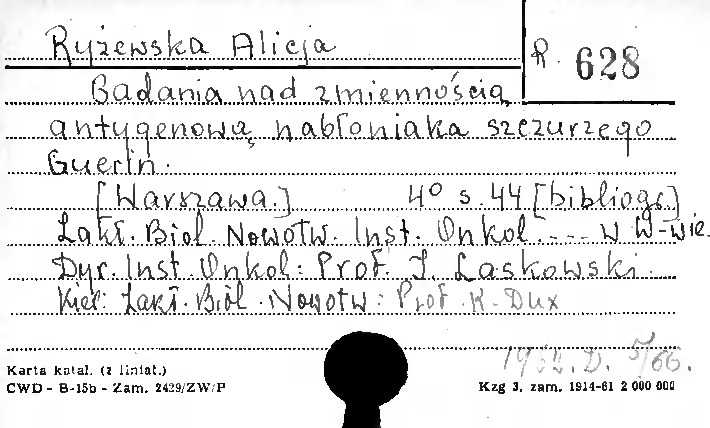 Ryżewska Alicja
R. 628
Badania nad zmiennością
antygenową nabłoniaka szczurzego
Guerin.
[Warszawa.] 4° s. 44 [bibliogr.]
Zakł. Biol. Nowotw. Inst. Onkol. .... w W-wie.
Dyr. Inst. Onkol: Prof. J. Laskowski.
Kier: Zakł. Biol. Nowotw: Prof. K. Dux
1962. D. 5/66.
Karta katal. (z liniat.)
CWD - B-15b - Zam. 2429/ZW/P
Kzg 3, zam. 1914-61 2 000 000